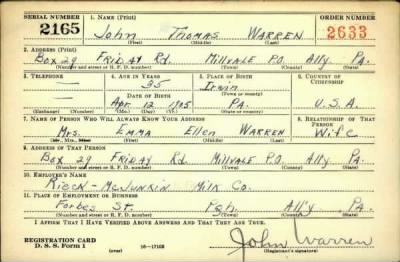 SERIAL NUMBER 1. NAME (Print) ORDER NUMBER
2165 John Thomas WARREN 2633
(First) (Middle) (Last)
2. ADDRESS (Print)
Box 29 FRIDAY Rd. Millvale P.O. Ally. PA.
(Number and street or R. F. D. number) (Town) (County) (State)
3. TELEPHONE 4. AGE IN YEARS 5. PLACE OF BIRTH 6. COUNTRY OF CITIZENSHIP
— 35 Irwin
DATE OF BIRTH (Town or county)
— Apr. 12 1905 PA. U.S.A.
(Exchange) (Number) (Mo.) (Day) (Yr.) (State or country)
7. NAME OF PERSON WHO WILL ALWAYS KNOW YOUR ADDRESS 8. RELATIONSHIP OF THAT PERSON
Mrs. EMMA Ellen WARREN Wife
(Mr., Mrs., Miss) (First) (Middle) (Last)
9. ADDRESS OF THAT PERSON
Box 29 FRIDAY Rd Millvale P.O. Ally. PA.
(Number and street or R. F. D. number) (Town) (County) (State)
10. EMPLOYER'S NAME
RIECK - McJUNKIN Milk Co.
11. PLACE OF EMPLOYMENT OR BUSINESS
Forbes St. Pgh. All'y PA.
(Number and street or R. F. D. number) (Town) (County) (State)
I AFFIRM THAT I HAVE VERIFIED ABOVE ANSWERS AND THAT THEY ARE TRUE.
REGISTRATION CARD
D. S. S. Form 1 (over) 16—17105 John Warren
(Registrant's signature)